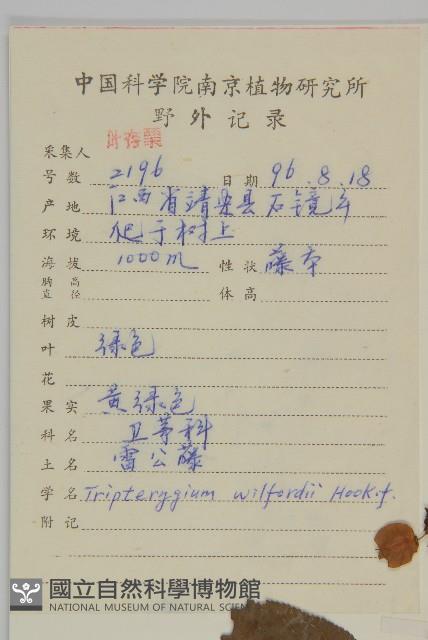 中国科学院南京植物研究所
野外记录
采集人 叶存粟
号数 2196 日期 96.8.18
产地 江西省靖安县石镜乡
环境 爬于树上
海拔 1000m 性状 藤本
胸高直径 体高
树皮
叶 绿色
花
果实 黄绿色
科名 卫茅科
土名 雷公藤
学名 Tripterygium wilfordii Hook.f.
附记
國立自然科學博物館
NATIONAL MUSEUM OF NATURAL